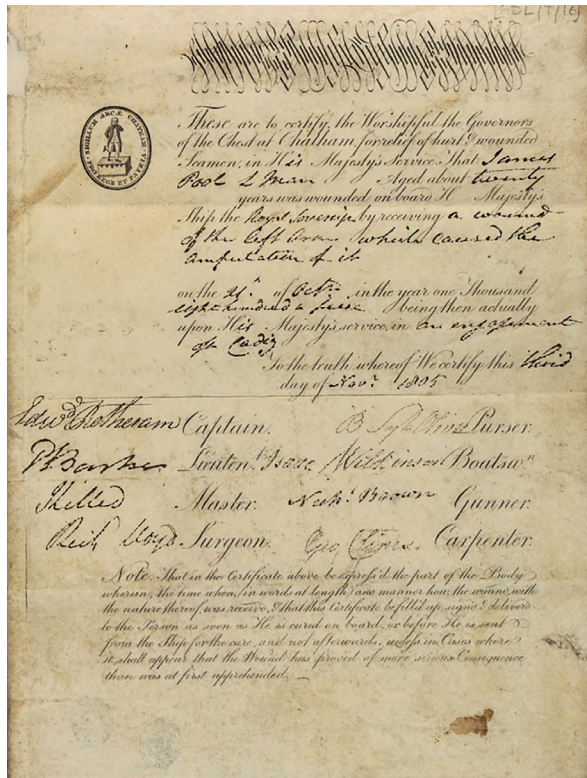 [ADL/T/16]
SIGILLUM ARCÆ CHATHAM · PRO REGE ET PATRIA ·
These are to certify, the Worshipful the Governors
of the Chest at Chatham, for relief of hurt & wounded
Seamen, in His Majesty's Service That James
Pool L Man Aged about twenty
years was wounded on board H Majesty's
Ship the Royal Sovereign by receiving a wound
of the left arm which caused the
amputation of it
on the 21st of Octr. in the year one Thousand
eight hundred & five being then actually
upon His Majesty's service, in an engagement
off Cadiz
To the truth whereof We certify this third
day of Novr. 1805
Edwd. Rotheram Captain. Purser.
Lieutent. Isaac Wilkinson Boatsn
Killed Master. Brown Gunner.
Lloyd Surgeon. Geo. Carpenter.
Note. That in the Certificate above be express'd the part of the Body
wherein, the time when, (in words at length) and manner how, the wound, with
the nature thereof, was receiv'd, & that this Certificate be filled up, sign'd & deliver'd
to the Person as soon as He is cured on board, or before He is sent
from the Ship for the cure, and not afterwards, unless in Cases where
it shall appear that the Wound has proved of more serious Consequence
than was at first apprehended. —